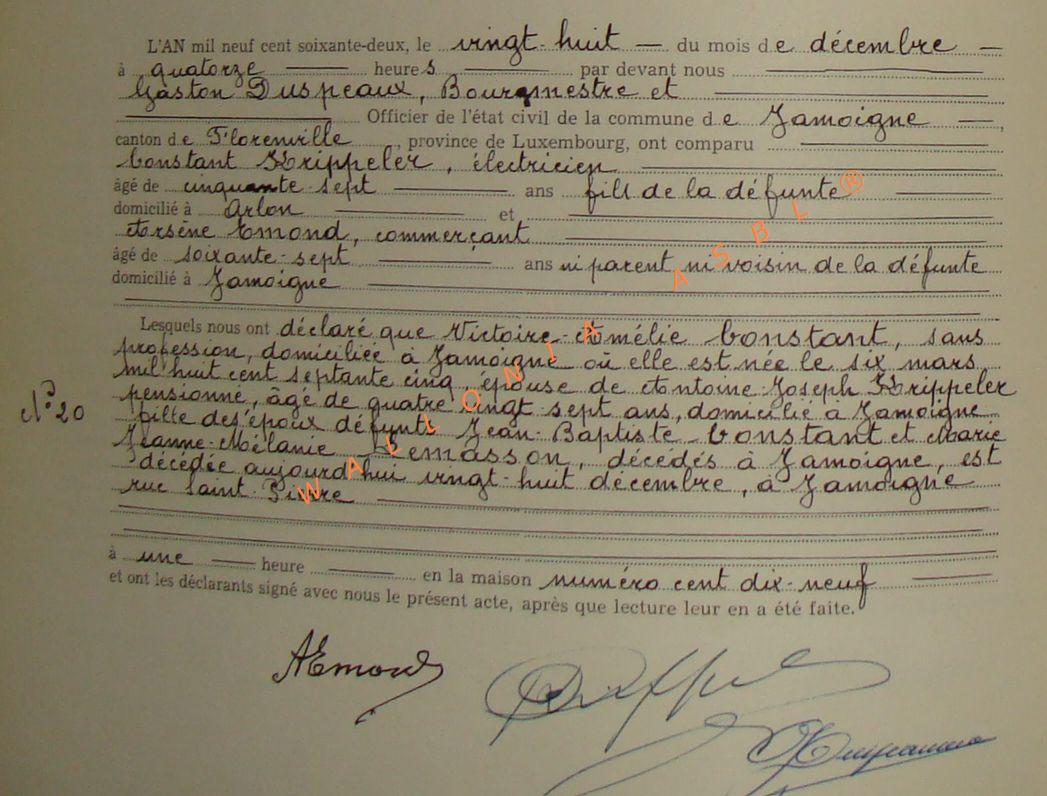 L'AN mil neuf cent soixante-deux, le vingt-huit — du mois de décembre —
à quatorze — heures — par devant nous
Gaston Duspeaux, Bourgmestre et
Officier de l'état civil de la commune de Jamoigne —,
canton de Florenville, province de Luxembourg, ont comparu
Constant Krippeler, électricien
âgé de cinquante sept ans fils de la défunte
domicilié à Arlon et
Arsène Emond, commerçant
âgé de soixante-sept ans ni parent ni voisin de la défunte
domicilié à Jamoigne
Lesquels nous ont déclaré que Victoire-Amélie Constant, sans
profession, domiciliée à Jamoigne où elle est née le six mars
mil huit cent septante cinq, épouse de Antoine-Joseph Krippeler
N° 20
pensionné, âgé de quatre vingt-sept ans, domicilié à Jamoigne
fille des époux défunts Jean-Baptiste Constant et Marie
Jeanne-Mélanie Lemasson, décédés à Jamoigne, est
décédée aujourd'hui vingt-huit décembre, à Jamoigne
rue Saint-Pierre
à une — heure — en la maison numéro cent dix-neuf
et ont les déclarants signé avec nous le présent acte, après que lecture leur en a été faite.
AEmond
WALLONIA ASBL ®